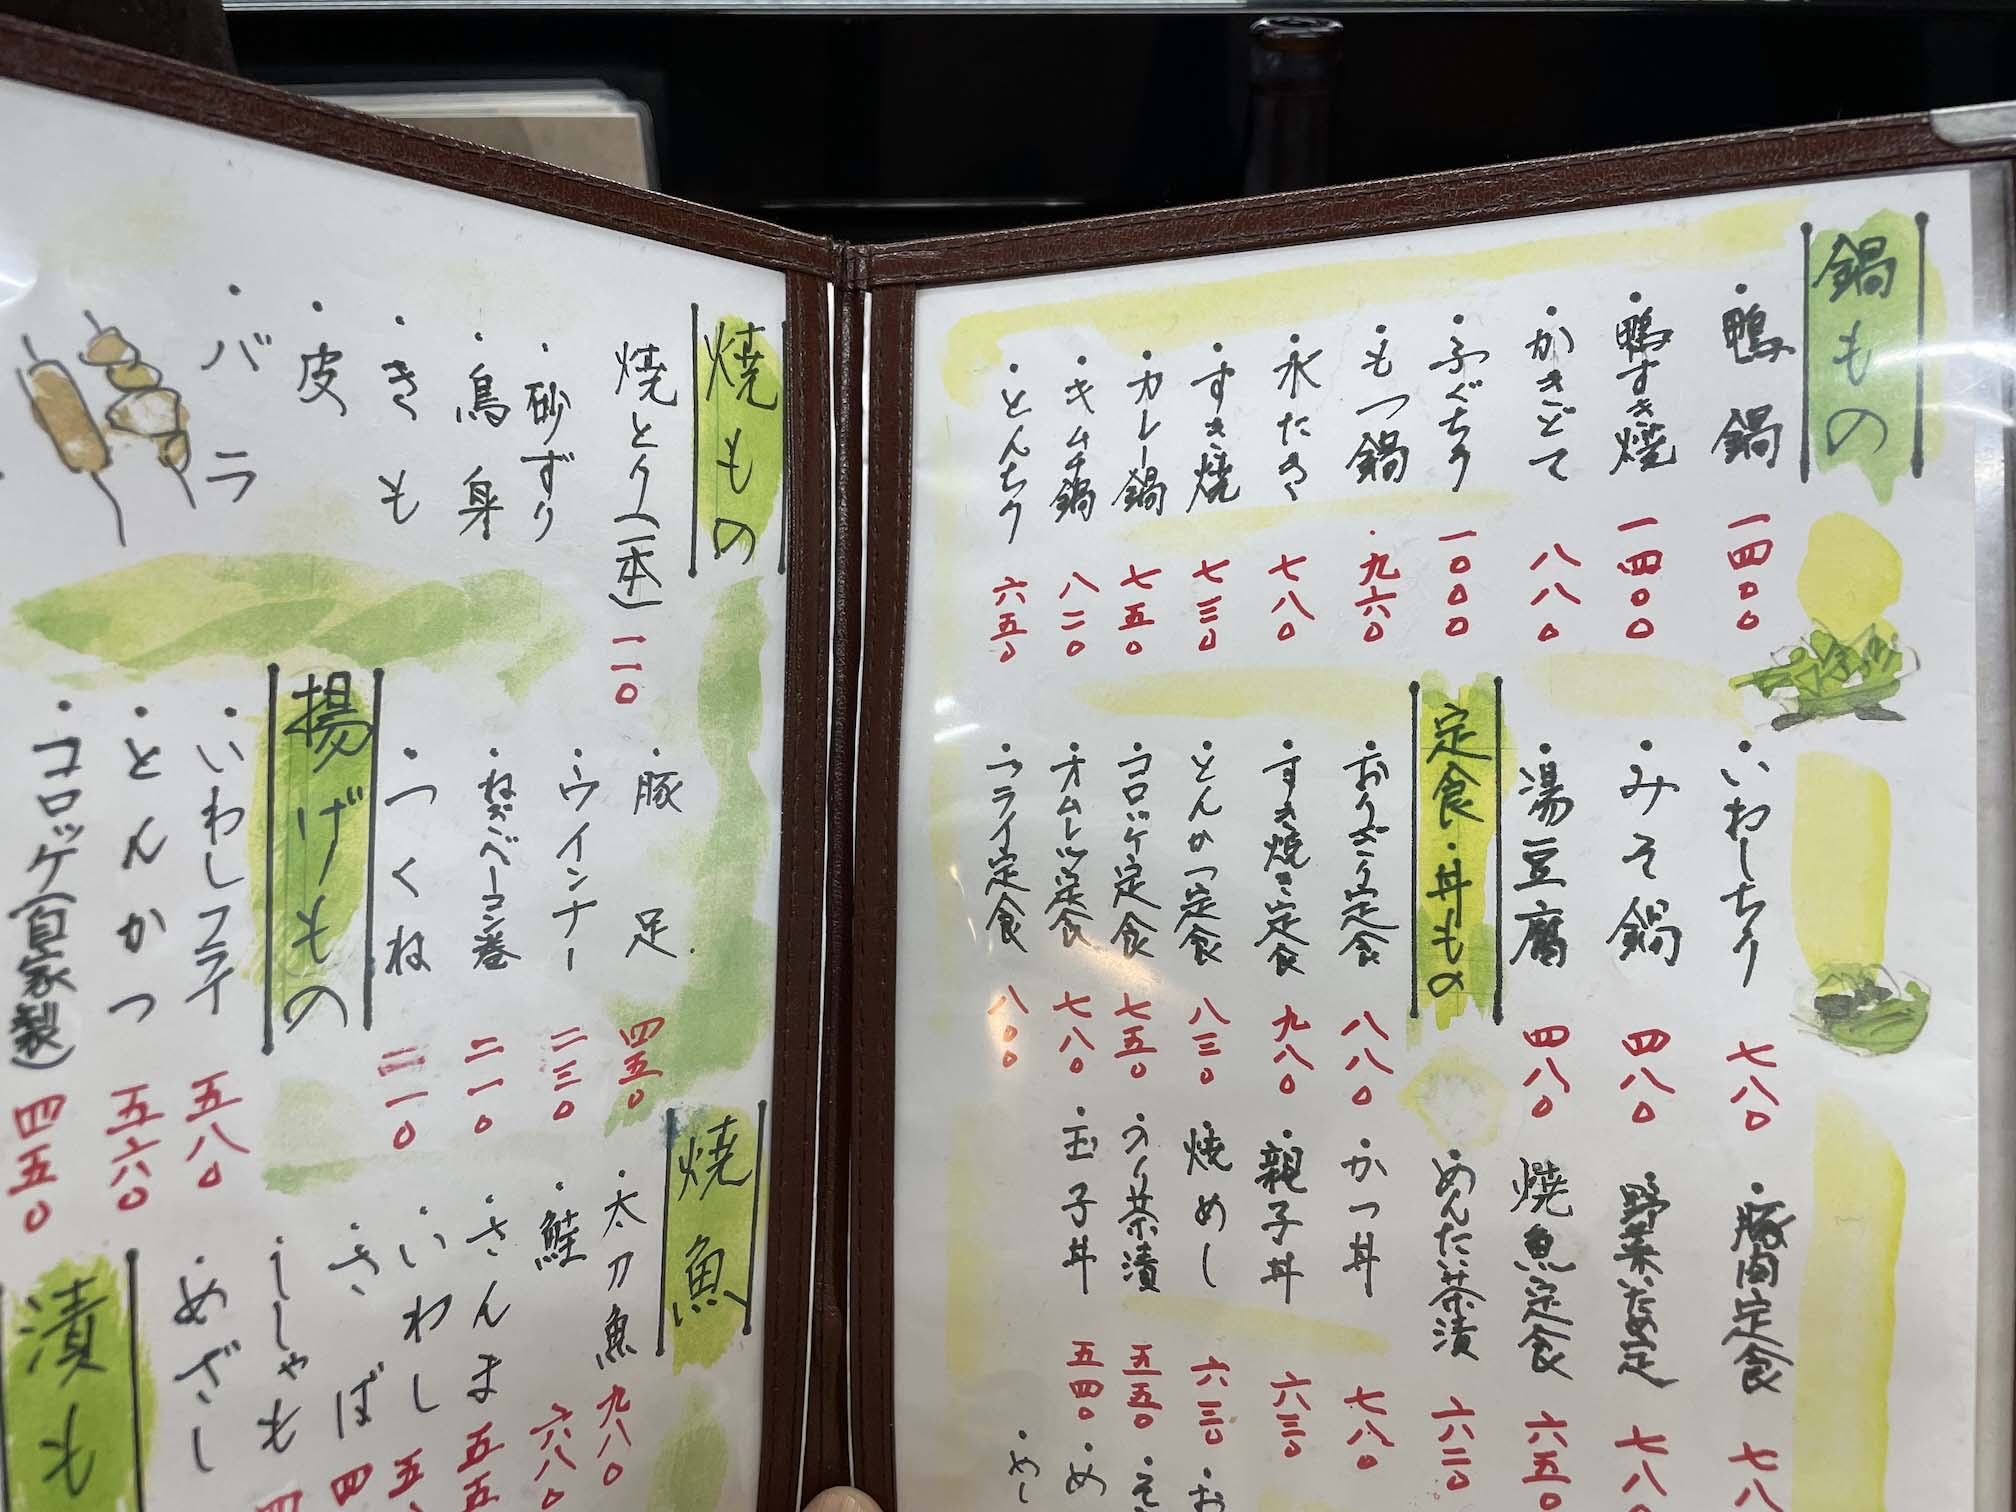 鍋もの
・鴨鍋 一四〇〇
・鴨すき焼 一四〇〇
・かきどて 八八〇
・ふぐちり 一〇〇〇
・もつ鍋 九六〇
・水たき 七八〇
・すき焼 七三〇
・カレー鍋 七五〇
・キムチ鍋 八二〇
・とんちり 六五〇
・いわしちり 七八〇
・みそ鍋 四八〇
・湯豆腐 四八〇
定食・丼もの
・おりざり定食 八八〇
・すき焼き定食 九八〇
・とんかつ定食 八三〇
・コロッケ定食 七五〇
・オムレツ定食 七八〇
・フライ定食 八〇〇
・豚肉定食 七八
・野菜いため定 七八
・焼魚定食 六五〇
・めんたい茶漬 六二〇
・かつ丼 七八〇
・親子丼 六三〇
・焼めし 六三〇
・のり茶漬 五五〇
・玉子丼 五四〇
・お
・そ
・め
・めし
焼もの
焼とり(一本) 一一〇
・砂ずり
・鳥身
・きも
・皮
・バラ
・豚足 四五〇
・ウインナー 二三〇
・ねぎベーコン巻 二一〇
・つくね 二一〇
揚げもの
・いわしフライ 五八〇
・とんかつ 五六〇
・コロッケ(自家製) 四五〇
焼魚
・太刀魚 九八〇
・鮭 六八〇
・さんま 五五
・いわし 五
・さば 四
・ししゃも 四
・めざし
漬も